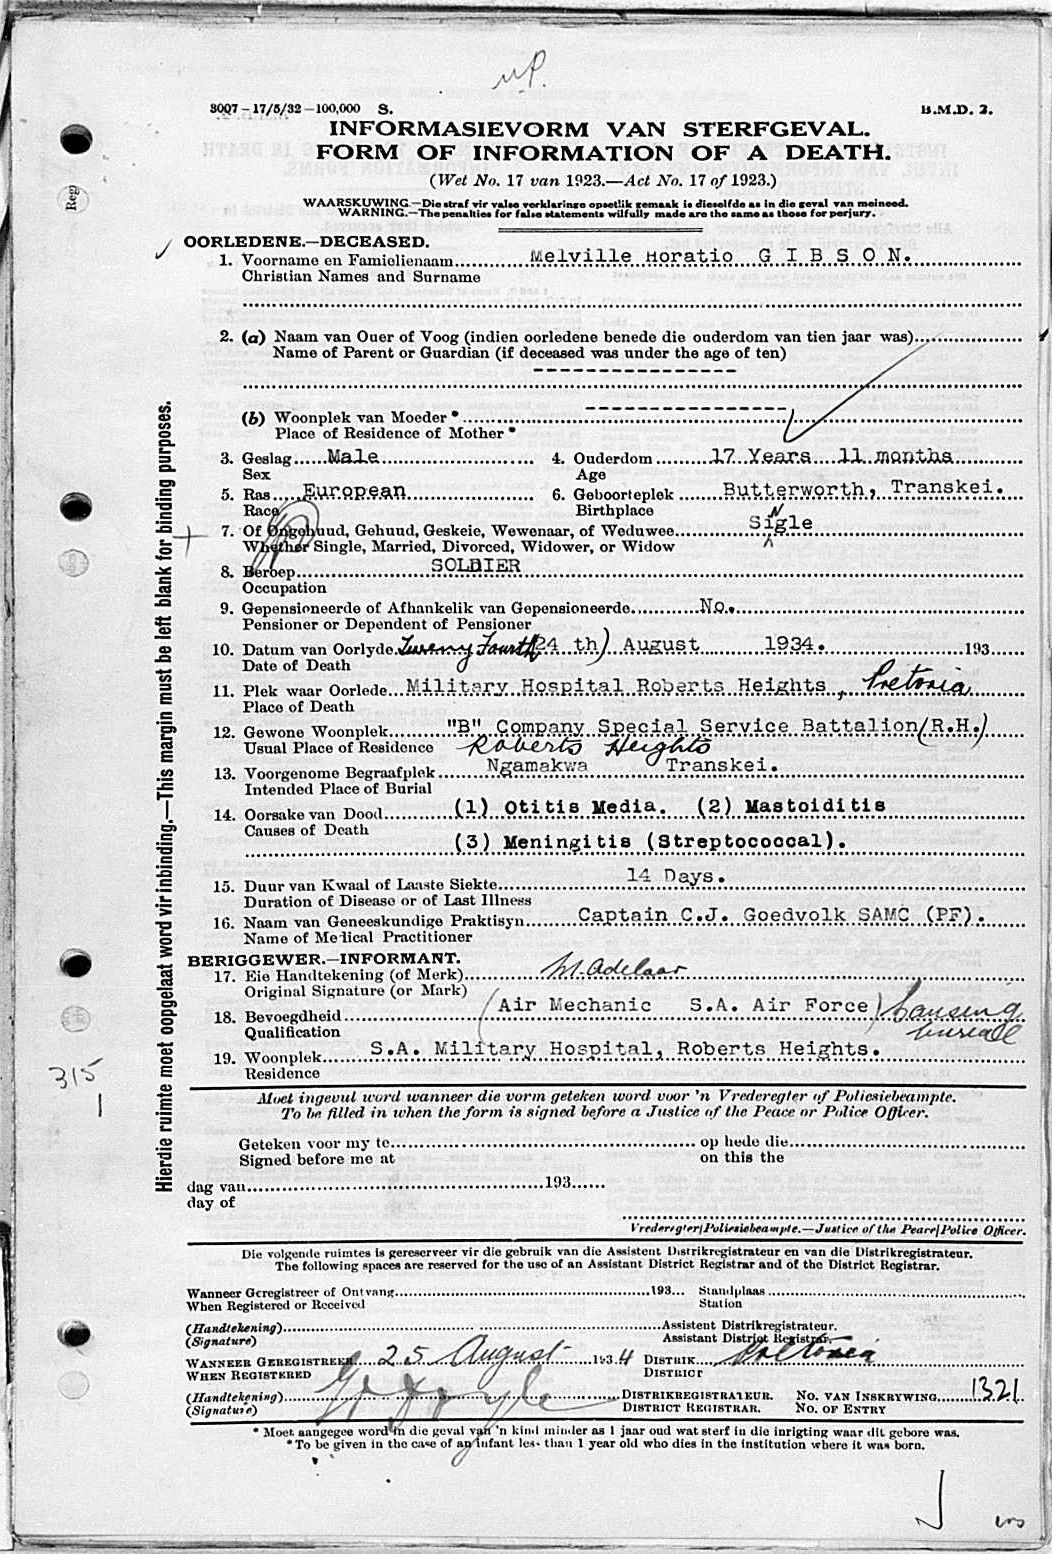 3007-17/5/32-100,000 S. B.M.D. 2.
INFORMASIEVORM VAN STERFGEVAL.
FORM OF INFORMATION OF A DEATH.
(Wet No. 17 van 1923.—Act No. 17 of 1923.)
WAARSKUWING.—Die straf vir valse verklaringe opsetlik gemaak is dieselfde as in die geval van meineed.
WARNING.—The penalties for false statements wilfully made are the same as those for perjury.
Reg
OORLEDENE.—DECEASED.
1. Voorname en Famielienaam Melville Horatio G I B S O N.
Christian Names and Surname
2. (a) Naam van Ouer of Voog (indien oorledene benede die ouderdom van tien jaar was)
Name of Parent or Guardian (if deceased was under the age of ten)
----------------
(b) Woonplek van Moeder* ----------------
Place of Residence of Mother*
3. Geslag Male 4. Ouderdom 17 Years 11 months
Sex Age
5. Ras European 6. Geboorteplek Butterworth, Transkei.
Race Birthplace
7. Of Ongehuud, Gehuud, Geskeie, Wewenaar, of Weduwee Sigle
N
Whether Single, Married, Divorced, Widower, or Widow
8. Beroep SOLDIER
Occupation
9. Gepensioneerde of Afhankelik van Gepensioneerde No.
Pensioner or Dependent of Pensioner
10. Datum van Oorlyde Twenty Fourth (24 th) August 1934. 193
Date of Death
11. Plek waar Oorlede Military Hospital Roberts Heights, Pretoria
Place of Death
12. Gewone Woonplek "B" Company Special Service Battalion (R.H.)
Usual Place of Residence Roberts Heights
13. Voorgenome Begraafplek Ngamakwa Transkei.
Intended Place of Burial
14. Oorsake van Dood (1) Otitis Media. (2) Mastoiditis
Causes of Death
(3) Meningitis (Streptococcal).
15. Duur van Kwaal of Laaste Siekte 14 Days.
Duration of Disease or of Last Illness
16. Naam van Geneeskundige Praktisyn Captain C.J. Goedvolk SAMC (PF).
Name of Medical Practitioner
BERIGGEWER.—INFORMANT.
17. Eie Handtekening (of Merk) M. Adelaar
Original Signature (or Mark)
18. Bevoegdheid (Air Mechanic S.A. Air Force) Causing
Qualification burial
19. Woonplek S.A. Military Hospital, Roberts Heights.
Residence
315
1
Hierdie ruimte moet oopgelaat word vir inbinding.—This margin must be left blank for binding purposes.
Moet ingevul word wanneer die vorm geteken word voor 'n Vrederegter of Poliesiebeampte.
To be filled in when the form is signed before a Justice of the Peace or Police Officer.
Geteken voor my te op hede die
Signed before me at on this the
dag van 193
day of
Vrederegter/Poliesiebeampte.—Justice of the Peace/Police Officer.
Die volgende ruimtes is gereserveer vir die gebruik van die Assistent Distrikregistrateur en van die Distrikregistrateur.
The following spaces are reserved for the use of an Assistant District Registrar and of the District Registrar.
Wanneer Geregistreer of Ontvang 193 Standplaas
When Registered or Received Station
(Handtekening) Assistent Distrikregistrateur.
(Signature) Assistant District Registrar.
WANNEER GEREGISTREER 25 August 1934 DISTRIK Pretoria
WHEN REGISTERED DISTRICT
(Handtekening) DISTRIKREGISTRATEUR. NO. VAN INSKRYWING 1321
(Signature) DISTRICT REGISTRAR. NO. OF ENTRY
* Moet aangegee word in die geval van 'n kind minder as 1 jaar oud wat sterf in die inrigting waar dit gebore was.
* To be given in the case of an infant less than 1 year old who dies in the institution where it was born.